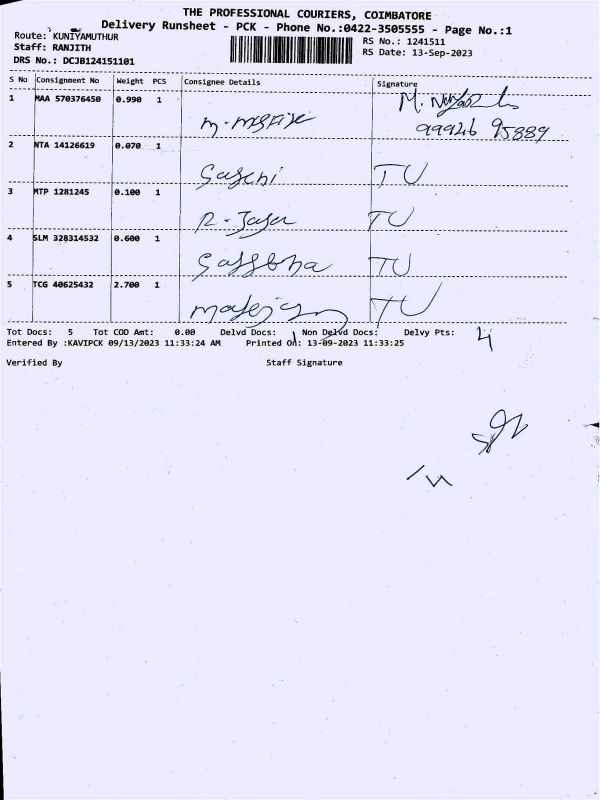 THE PROFESSIONAL COURIERS, COIMBATORE
Delivery Runsheet - PCK - Phone No.:0422-3505555 - Page No.:1
Route: KUNIYAMUTHUR
RS No.: 1241511
Staff: RANJITH
RS Date: 13-Sep-2023
DRS No.: DCJB124151101
S No Consignment No Weight PCS Consignee Details Signature
1 MAA 570376450 0.990 1
99926 95889
2 NTA 14126619 0.070 1
TU
3 MTP 1281245 0.100 1
TU
4 SLM 328314532 0.600 1
TU
5 TCG 40625432 2.700 1
TU
Tot Docs: 5 Tot COD Amt: 0.00 Delvd Docs: Non Delvd Docs: Delvy Pts: 4
Entered By :KAVIPCK 09/13/2023 11:33:24 AM Printed On: 13-09-2023 11:33:25
Verified By Staff Signature